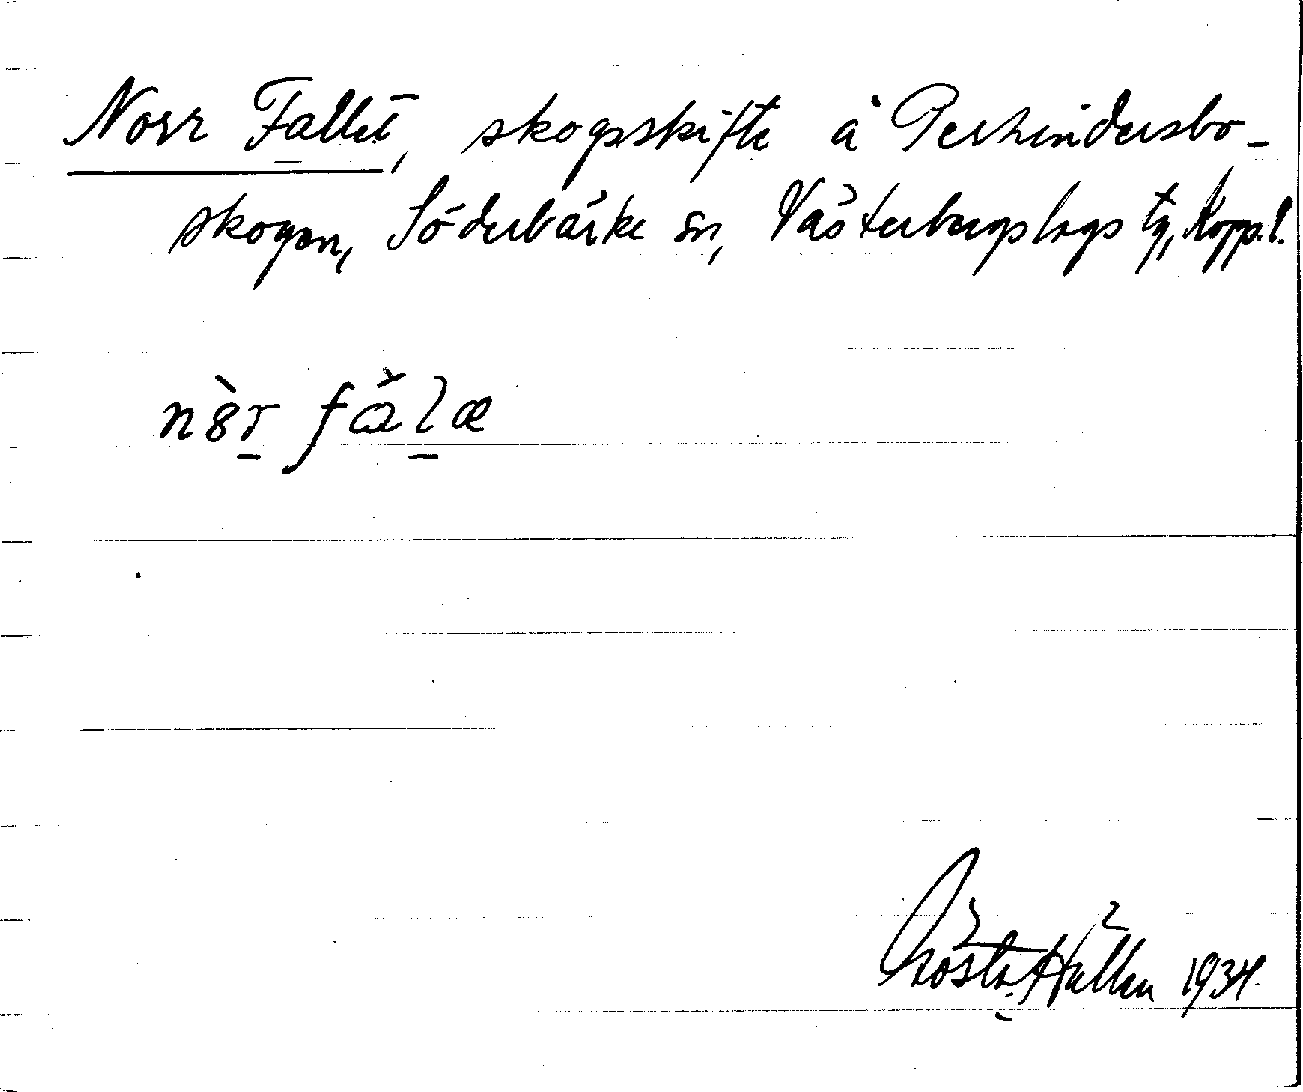 Norr Fallet, skogsskifte å Perhindersbo-
skogen, Söderbärke sn, Västerbergslags tg, Kopp. l.
nò̀r fåḻæ
Gösta Hallén 1934.